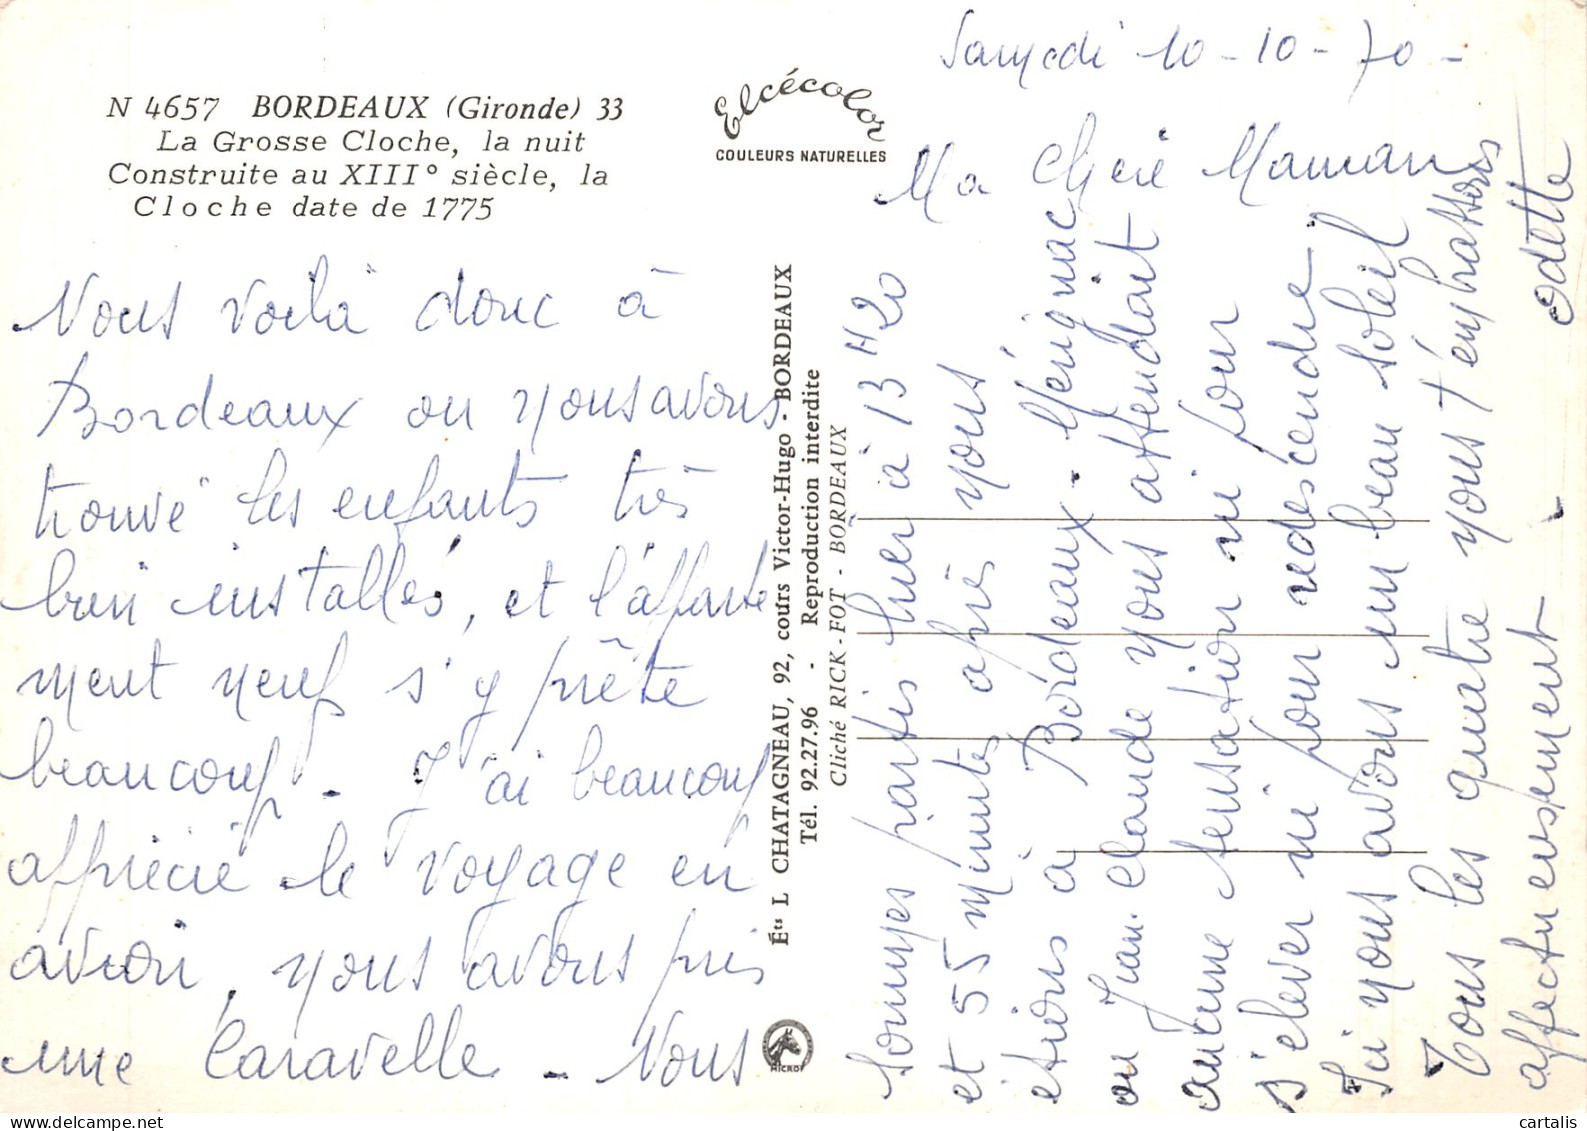 N 4657 BORDEAUX (Gironde) 33
La Grosse Cloche, la nuit
Construite au XIII° siècle, la
Cloche date de 1775
Elcécolor
COULEURS NATURELLES
Samedi 10-10-70-
Ma chère Maman
Nous voilà donc à
Bordeaux ou nous avons
trouvé les enfants très
bien installés, et l'apparte
ment neuf s'y prête
beaucoup - J'ai beaucoup
apprécié le voyage en
avion, nous avons pris
une Caravelle - Nous
sommes partis hier à 13H20
et 55 minutes après nous
étions à Bordeaux-Mérignac
ou Jean-Claude nous attendait
aucune sensation ni pour
s'élever ni pour redescendre
Ici nous avons un beau soleil
Tous les quatre nous t'embrassons
affectueusement -
Odette
Éts L CHATAGNEAU, 92, cours Victor-Hugo - BORDEAUX
Tél. 92.27.96 - Reproduction interdite
Cliché RICK-FOT - BORDEAUX
MICROF
cartalis